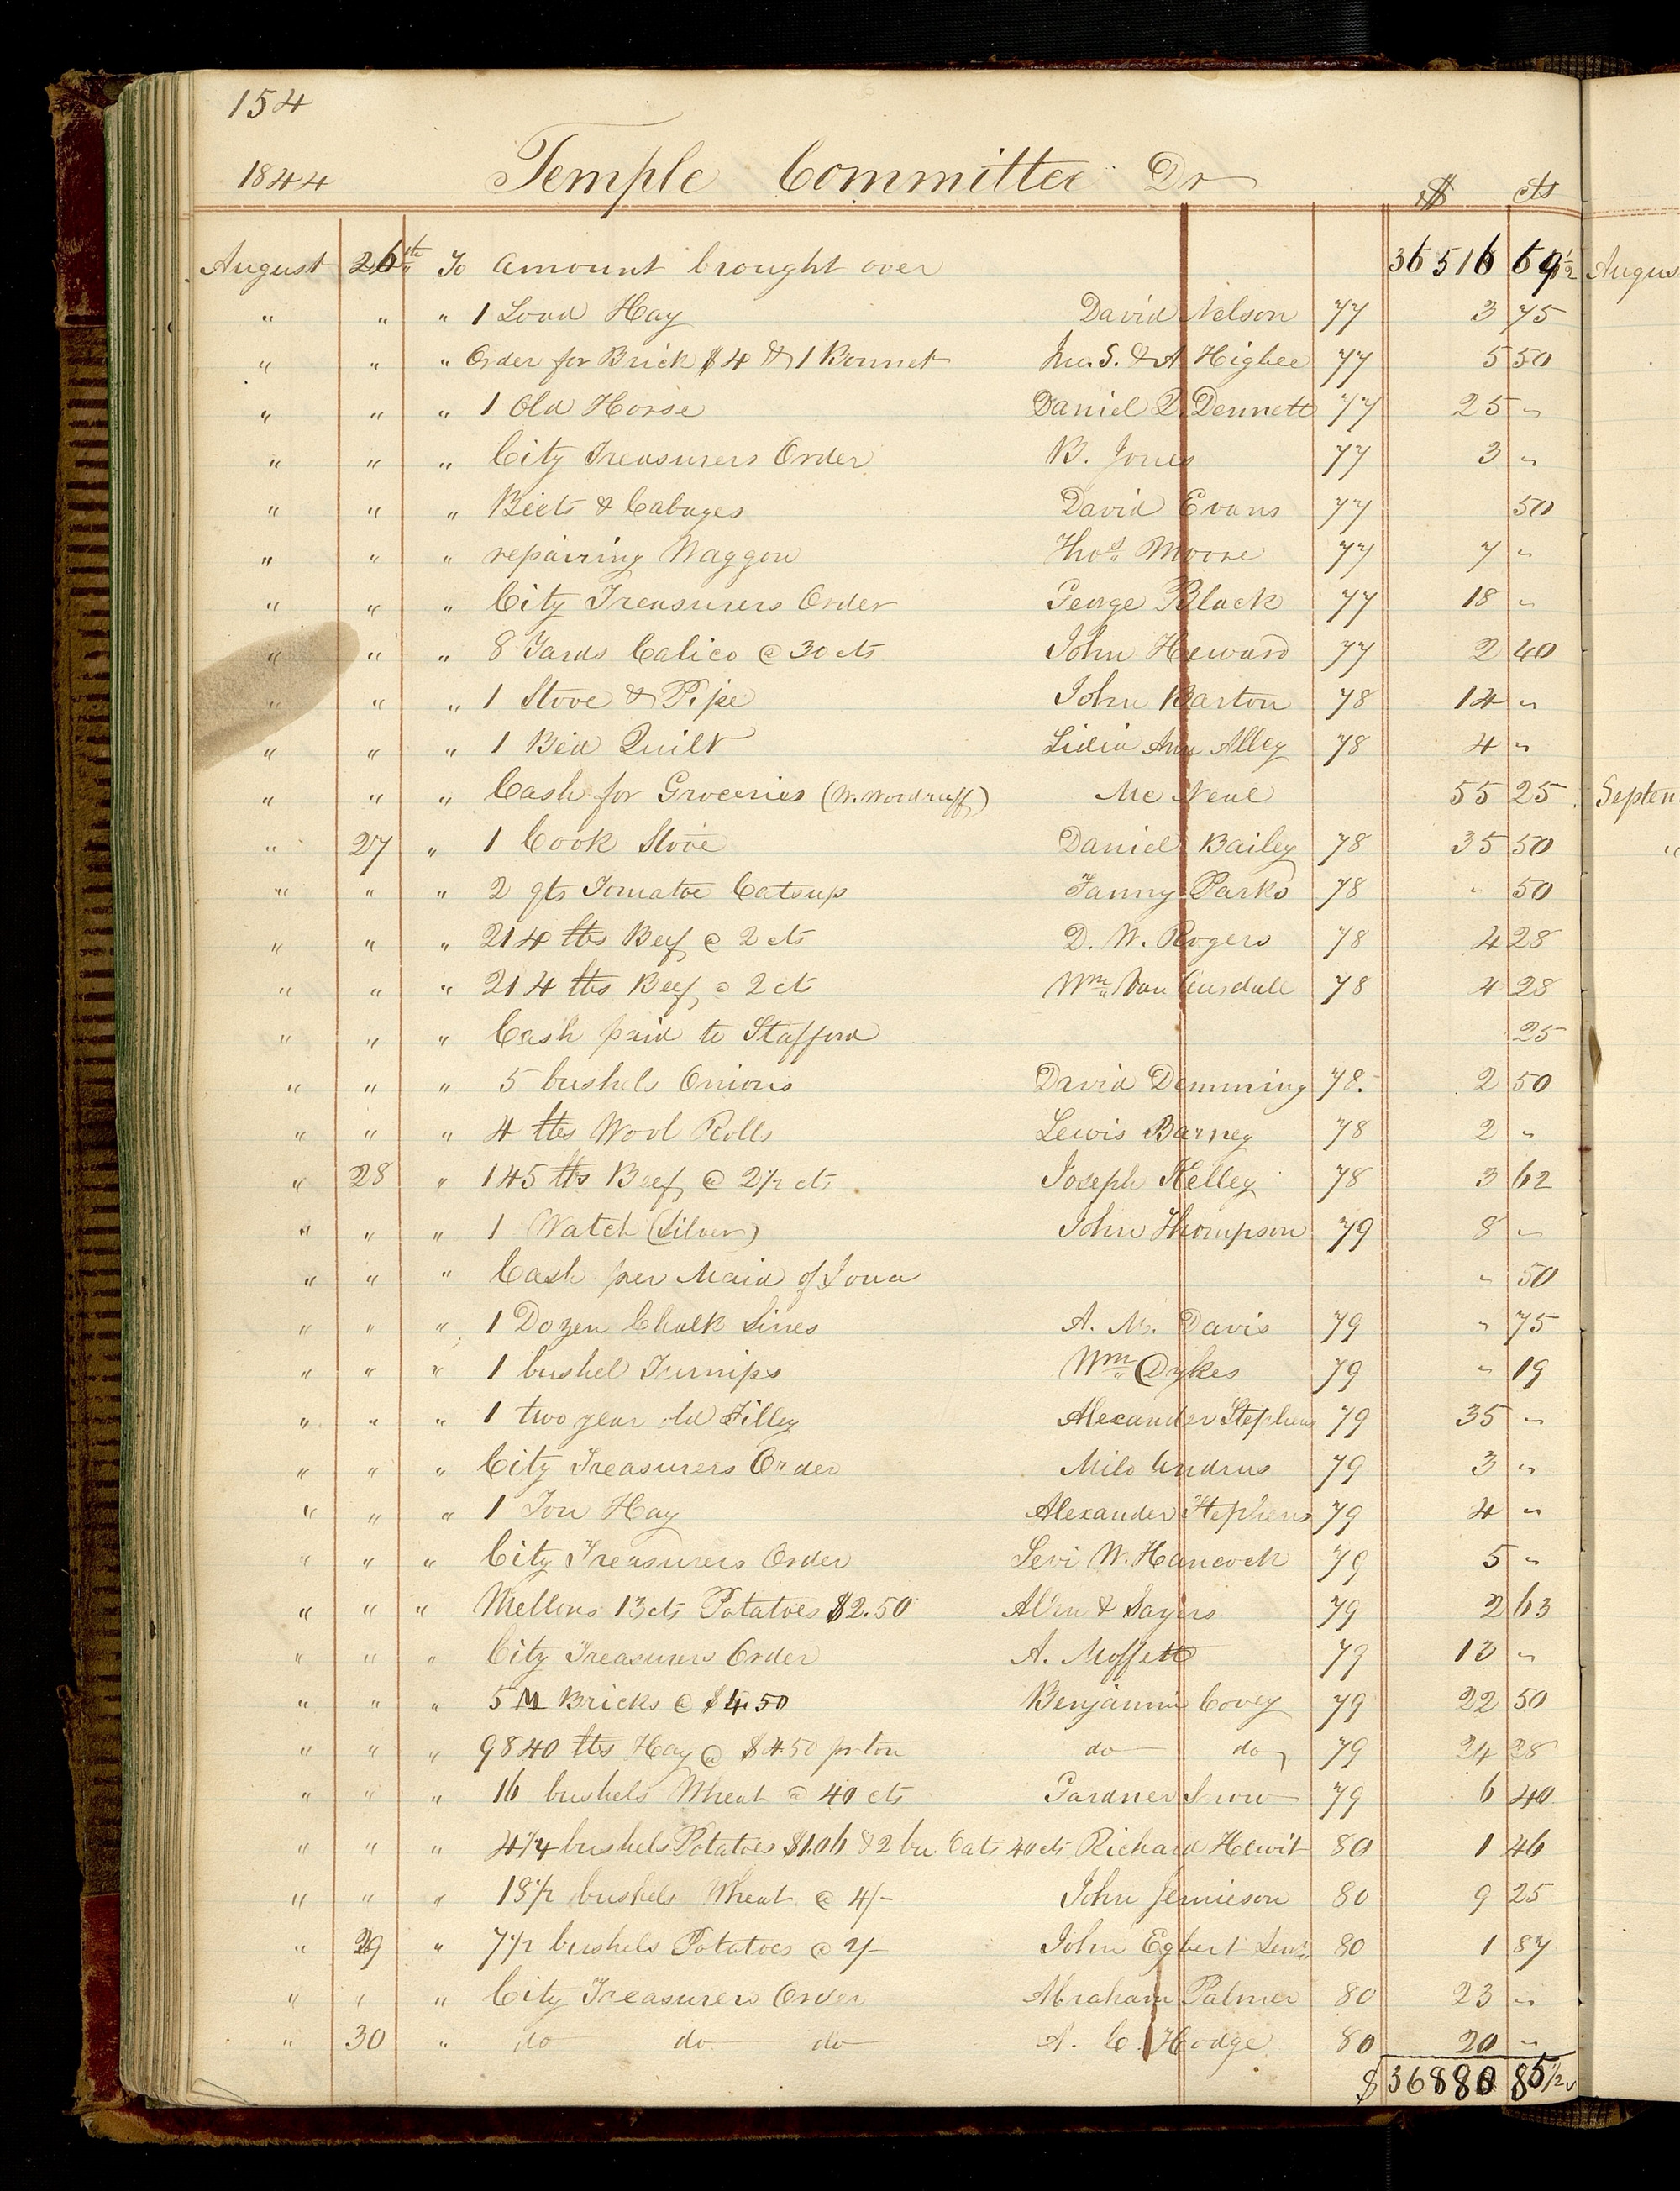 154
1844 Temple Committee Dr $ cts
August 26th To Amount brought over 36516 69½
" " " 1 Load Hay David Nelson 77 3 75
" " " Order for Brick $4 & 1 Bonnet Jno. S. & A. Higbee 77 5 50
" " " 1 Old Horse Daniel Q. Dennett 77 25 "
" " " City Treasurers Order B. Jones 77 3 "
" " " Beets & Cabages David Evans 77 50
" " " repairing Waggon Thos. Moore 77 7 "
" " " City Treasurers Order George Black 77 18 "
" " " 8 Yards Calico @ 30 cts John Heward 77 2 40
" " " 1 Stove & Pipe John Barton 78 14 "
" " " 1 Bed Quilt Lidia Ann Alley 78 4 "
" " " Cash for Groceries (W. Woodruff) Mc Neal 55 25
" 27 " 1 Cook Stove Daniel Bailey 78 35 50
" " " 2 qts Tomatoe Catsup Fanny Parks 78 " 50
" " " 214 lbs Beef @ 2 cts D. W. Rogers 78 4 28
" " " 214 lbs Beef @ 2 ct Wm. Van Ausdall 78 4 28
" " " Cash paid to Stafford 25
" " " 5 bushels Onions David Demming 78. 2 50
" " " 4 lbs Wool Rolls Lewis Barney 78 2 "
" 28 " 145 lbs Beef @ 2½ cts Joseph Kelley 78 3 62
" " " 1 Watch (Silver) John Thompson 79 8 "
" " " Cash per Maid of Iowa " 50
" " " 1 Dozen Chalk Lines A. M. Davis 79 " 75
" " " 1 bushel Turnips Wm. Dykes 79 " 19
" " " 1 two year old Filley Alexander Stephens 79 35 "
" " " City Treasurers Order Milo Andrus 79 3 "
" " " 1 Ton Hay Alexander Stephens 79 4 "
" " " City Treasurers Order Levi W. Hancock 79 5 "
" " " Mellons 13 cts Potatoes $2.50 Allen & Sayers 79 2 63
" " " City Treasurers Order A. Moffett 79 13 "
" " " 5 M Bricks @ $4.50 Benjamin Covey 79 22 50
" " " 9840 lbs Hay @ $4.50 pr ton do do 79 24 28
" " " 16 bushels Wheat @ 40 cts Gardner Snow 79 6 40
" " " 4¼ bushels Potatoes $1.06 & 2 bu. Oats 40 cts Richard Hewit 80 1 46
" " " 18½ bushels Wheat @ 4/- John Jemieson 80 9 25
" 29 " 7½ bushels Potatoes @ 2/- John Egbert Lewis 80 1 87
" " " City Treasurers Order Abraham Palmer 80 23 "
" 30 " do do do A. C. Hodge 80 20 "
$ 36880 85½
Augus
Septem
"